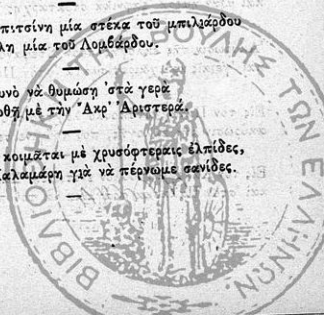 πιτσίνη μία στέκα τοῦ μπιλιάρδου
λη μία τοῦ Λομβάρδου.
υνὸ νὰ θυμώσῃ 'στὰ γερὰ
θῇ μὲ τὴν Ἀκρ' Ἀριστερά.
κοιμᾶται μὲ χρυσόφτεραις ἐλπίδες,
αλαμάρη γιὰ νὰ πέρνωμε σανίδες.
ΒΙΒΛΙΟΘΗΚΗ ΤΗΣ ΒΟΥΛΗΣ ΤΩΝ ΕΛΛΗΝΩΝ